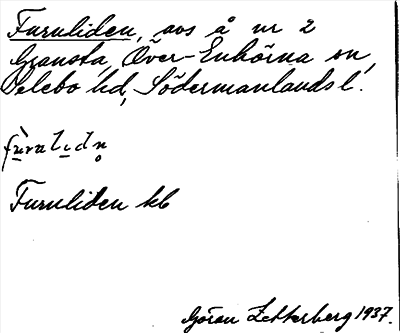 Furuliden, avs å nr 2
Gransta, Över-Enhörna sn,
Selebo hd, Södermanlands l.
Furuliden kb
Göran Zetterberg 1937.